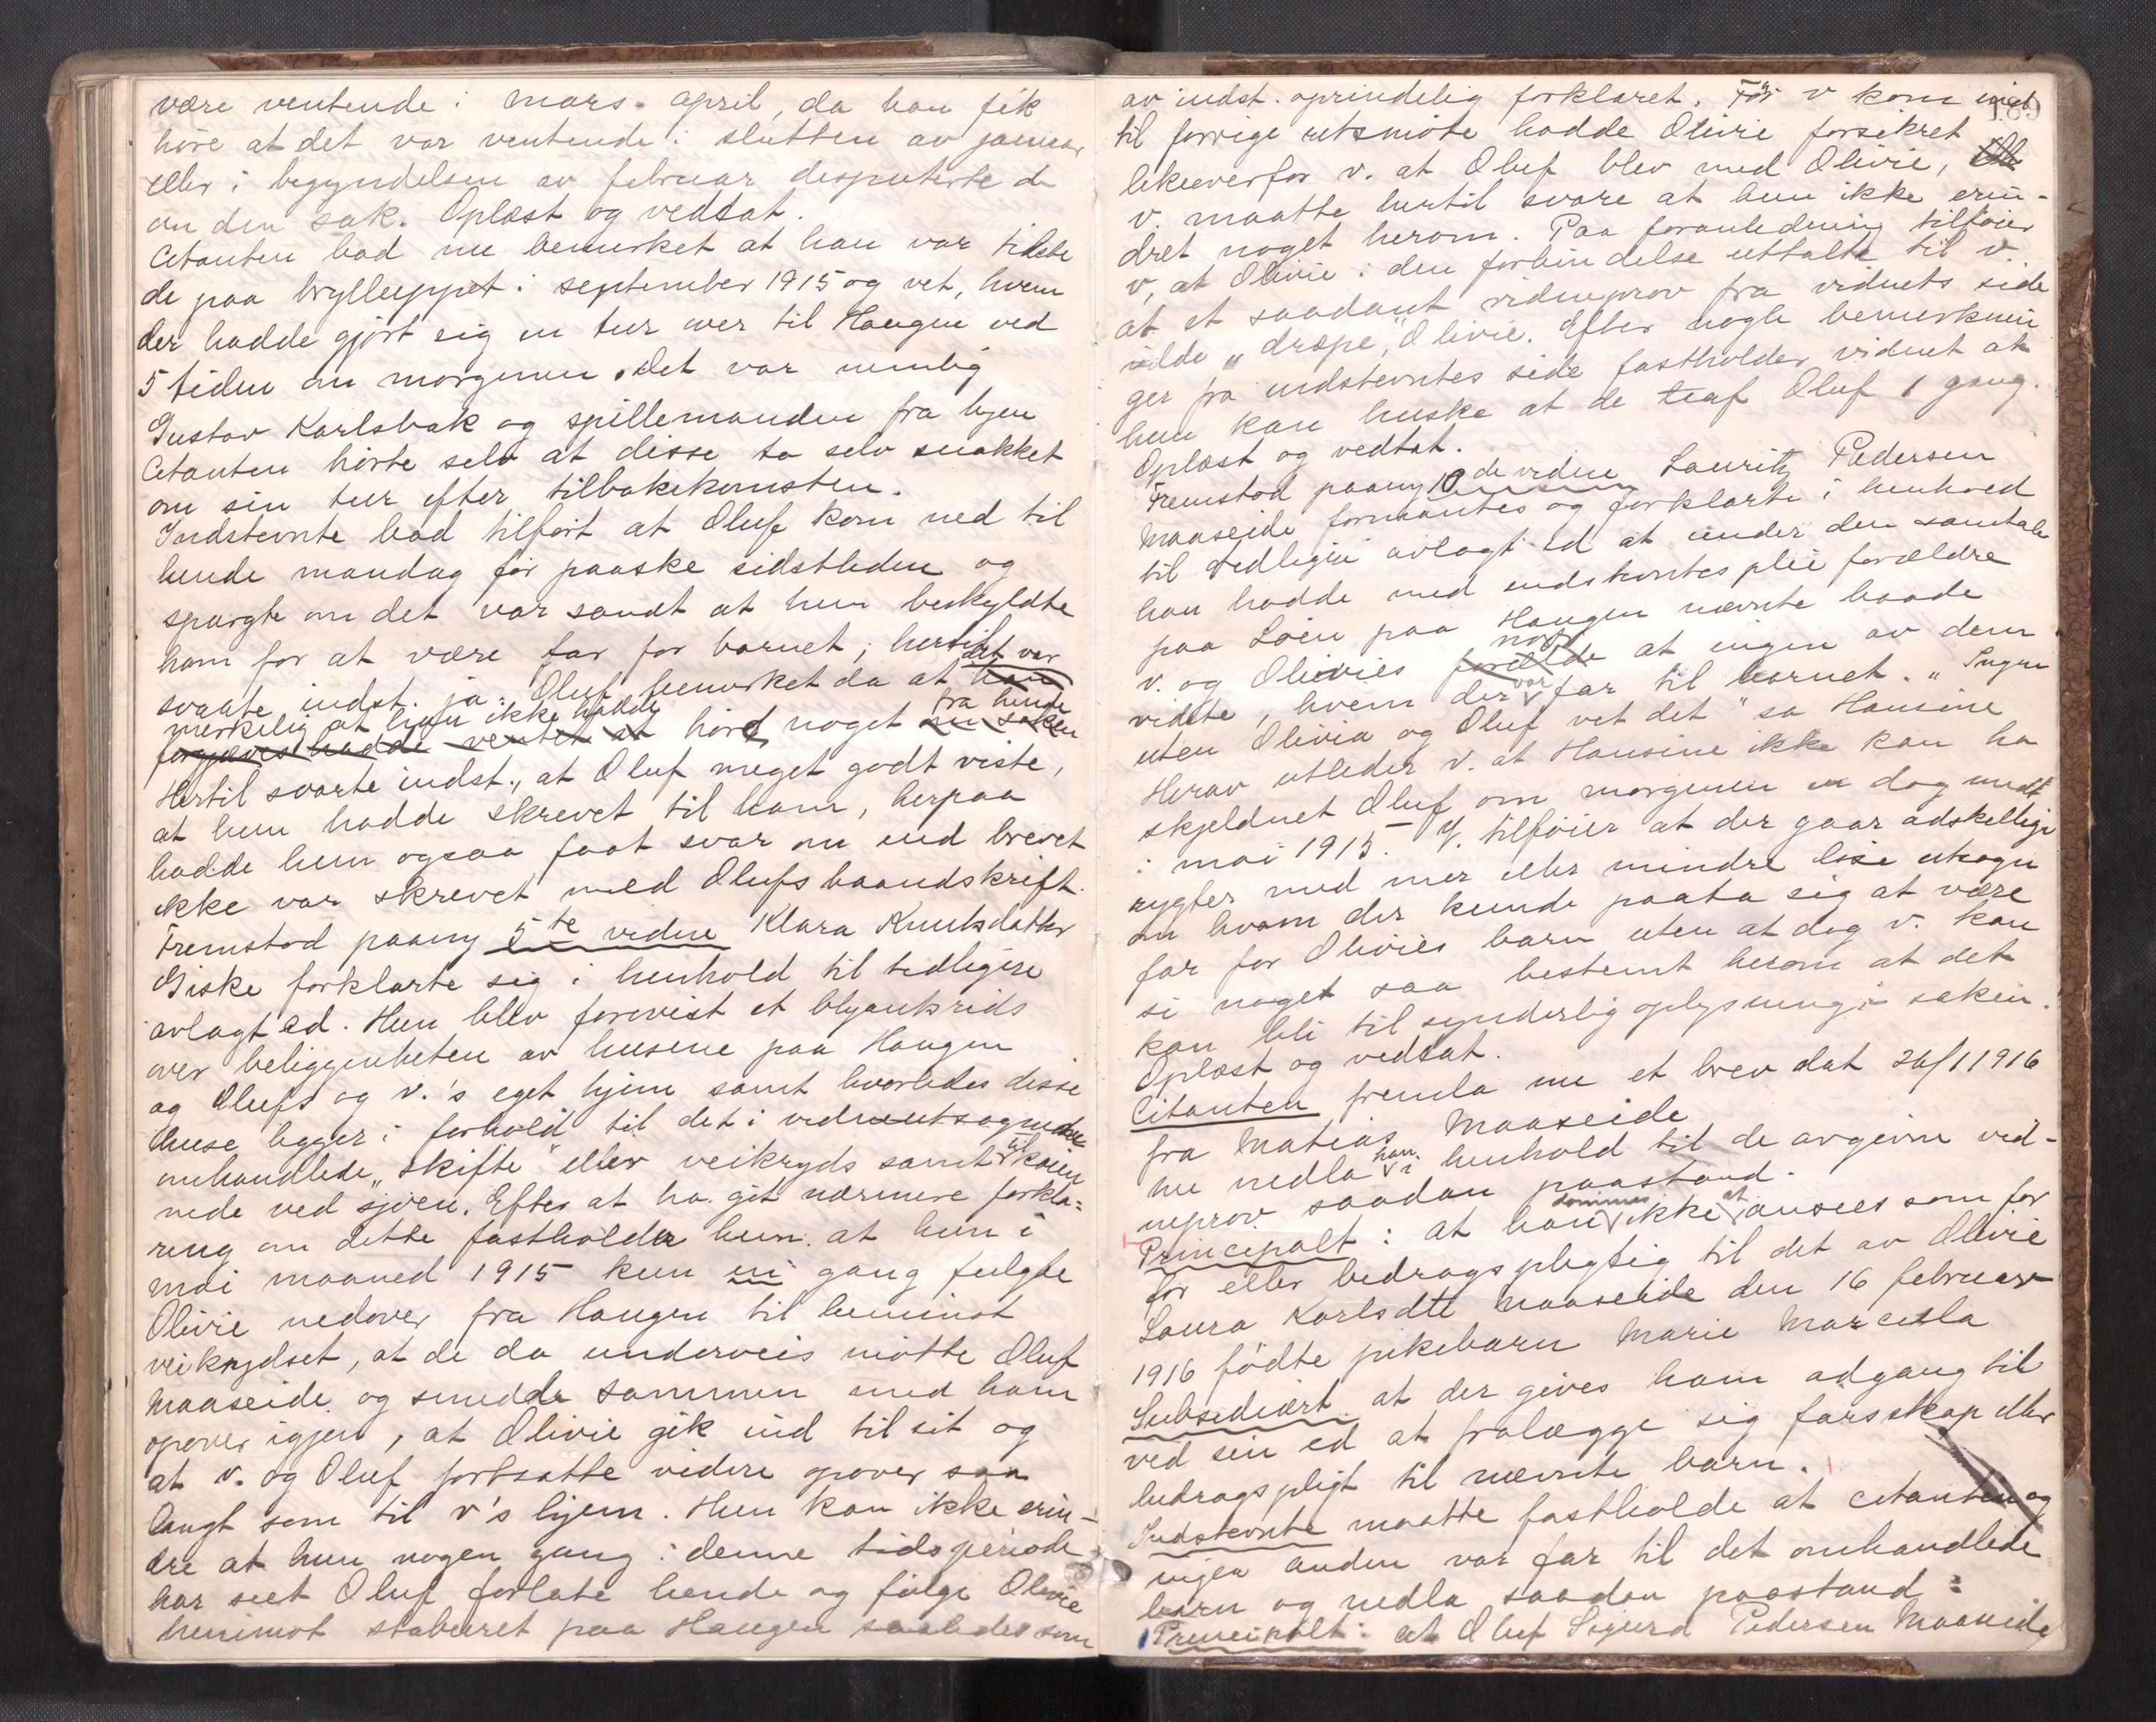 være ventende i mars - april, da han fik
høre at det var ventende i slutten av januar
eller i begyndelsen av februar disputerte de
om den sak. Oplæst og vedtat.
Citanten bad nu bemerket at han var tilste
de paa bryllup­pet i september 1915 og vet, hvem
der hadde gjort sig en tur over til Haugen ved
5 tiden om morgenen. Det var nemlig
Gustav Karlsbak og spillemanden fra byen
Citanten hørte selv at disse to selv snakket
om sin tur efter tilbakekomsten.
Indstevnte bad tilført at Oluf kom ned til
hende mandag før paaske sidstleden og
spurgte om det var sandt at hun beskyldte
ham for at være far for barnet; hertil
svarte indst. ja. Oluf bemerket da at det var
merkelig at han ikke hadde hørt noget fra hende
Hertil svarte indst., at Oluf meget godt viste,
at hun hadde skrevet til ham, herpaa
hadde hun ogsaa faat svar om end brevet
ikke var skrevet med Olufs haandskrift.
Fremstod paany 5te vidne Klara Knutsdatter
Giske forklarte sig i henhold til tidligere
avlagt ed. Hun blev forevist et blyantsrids
over beliggenheten av husene paa Haugen
og Olufs og v.'s eget hjem samt hvorledes disse
huse ligger i forhold til det i vidneutsagnene
omhandlede "skifte" eller veikryds samt til kaien
nede ved sjøen. Efter at ha git nærmere forkla-
ring om dette fastholder hun at hun i
mai maaned 1915 kun en gang fulgte
Olivie nedover fra Haugen til henimot
veikrydset, at de da underveis møtte Oluf
Maaseide og snudde sammen med ham
opover igjen, at Olivie gik ind til sit og
at v. og Oluf fortsatte videre opover saa
langt som til v's hjem. Hun kan ikke erin-
dre at hun nogen gang i denne tidsperiode
har seet Oluf forlate hende og følge Olivie
henimot stabburet paa Haugen saaledes som
189
av indst. oprindelig forklaret. Før v kom ind
til forrige retsmøte hadde Olivie forsikret
likeoverfor v. at Oluf blev med Olivie,
v. maatte hertil svare at hun ikke erin-
dret noget herom. Paa foranledning tilføier
v, at Olivie i den forbindelse uttalte til v.
at et saadant vidneprov fra vidnets side
vilde "dræpe" Olivie. Efter nogle bemerknin
ger fra indstevntes side fastholder vidnet at
hun kan huske at de traf Oluf 1 gang.
Oplæst og vedtat.
Fremstod paany 10de vidne Lauritz Pedersen
Maaseide formantes og forklarte i henhold
til tidligere avlagt ed at under den samtale
han hadde med indstevntes pleieforældre
paa Løen paa Haugen nævnte baade
v. og Olivies mor at ingen av dem
vidste, hvem der var far til barnet. "Ingen
uten Olivia og Oluf vet det" sa Hansine
Herav utleder v. at Hansine ikke kan ha
skjeldnet Oluf om morgenen en dag midt
i mai 1915. V. tilføier at der gaar adskellige
rygter med mer eller mindre løse utsagn
om hvem der kunde paata sig at være
far for Olivies barn uten at dog v. kan
si noget saa bestemt herom at det
kan bli til synderlig oplysning i saken.
Oplæst og vedtat.
Citanten fremla nu et brev dat 26/1 1916
fra Matias Maaseide
nu nedla han i henhold til de avgivne vid-
neprov saadan paastand.
Principalt: at han dømmes ikke at ansees som far
for eller bidragspligtig til det av Olivie
Laura Karlsdtt Maaseide den 16 februar
1916 fødte pikebarn Marie Marcella
Subsidiært at der gives ham adgang til
ved sin ed at fralægge sig farsskap eller
bidragspligt til nævnte barn.
Indstevnte maatte fastholde at citanten og
ingen anden var far til det omhandlede
barn og nedla saadan paastand:
Principalt: at Oluf Sigurd Pedersen Maaseide